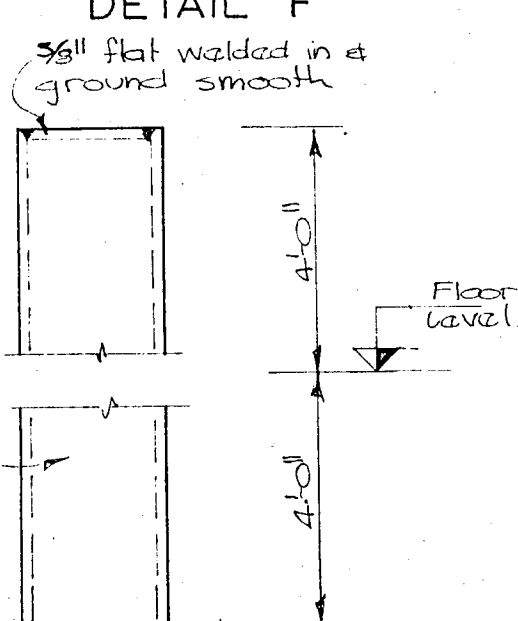 DETAIL F
5/8" flat welded in &
ground smooth
4'-0"
Floor
Level.
4'-0"